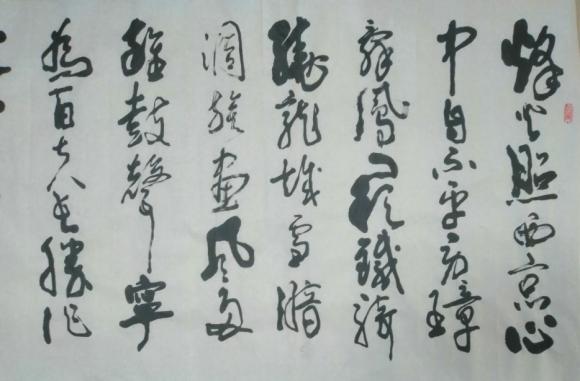 烽火照西京心
中自不平牙璋
辭鳳闕鐵騎
繞龍城雪暗
凋旗畫風多
雜鼓聲寧
為百夫長勝作